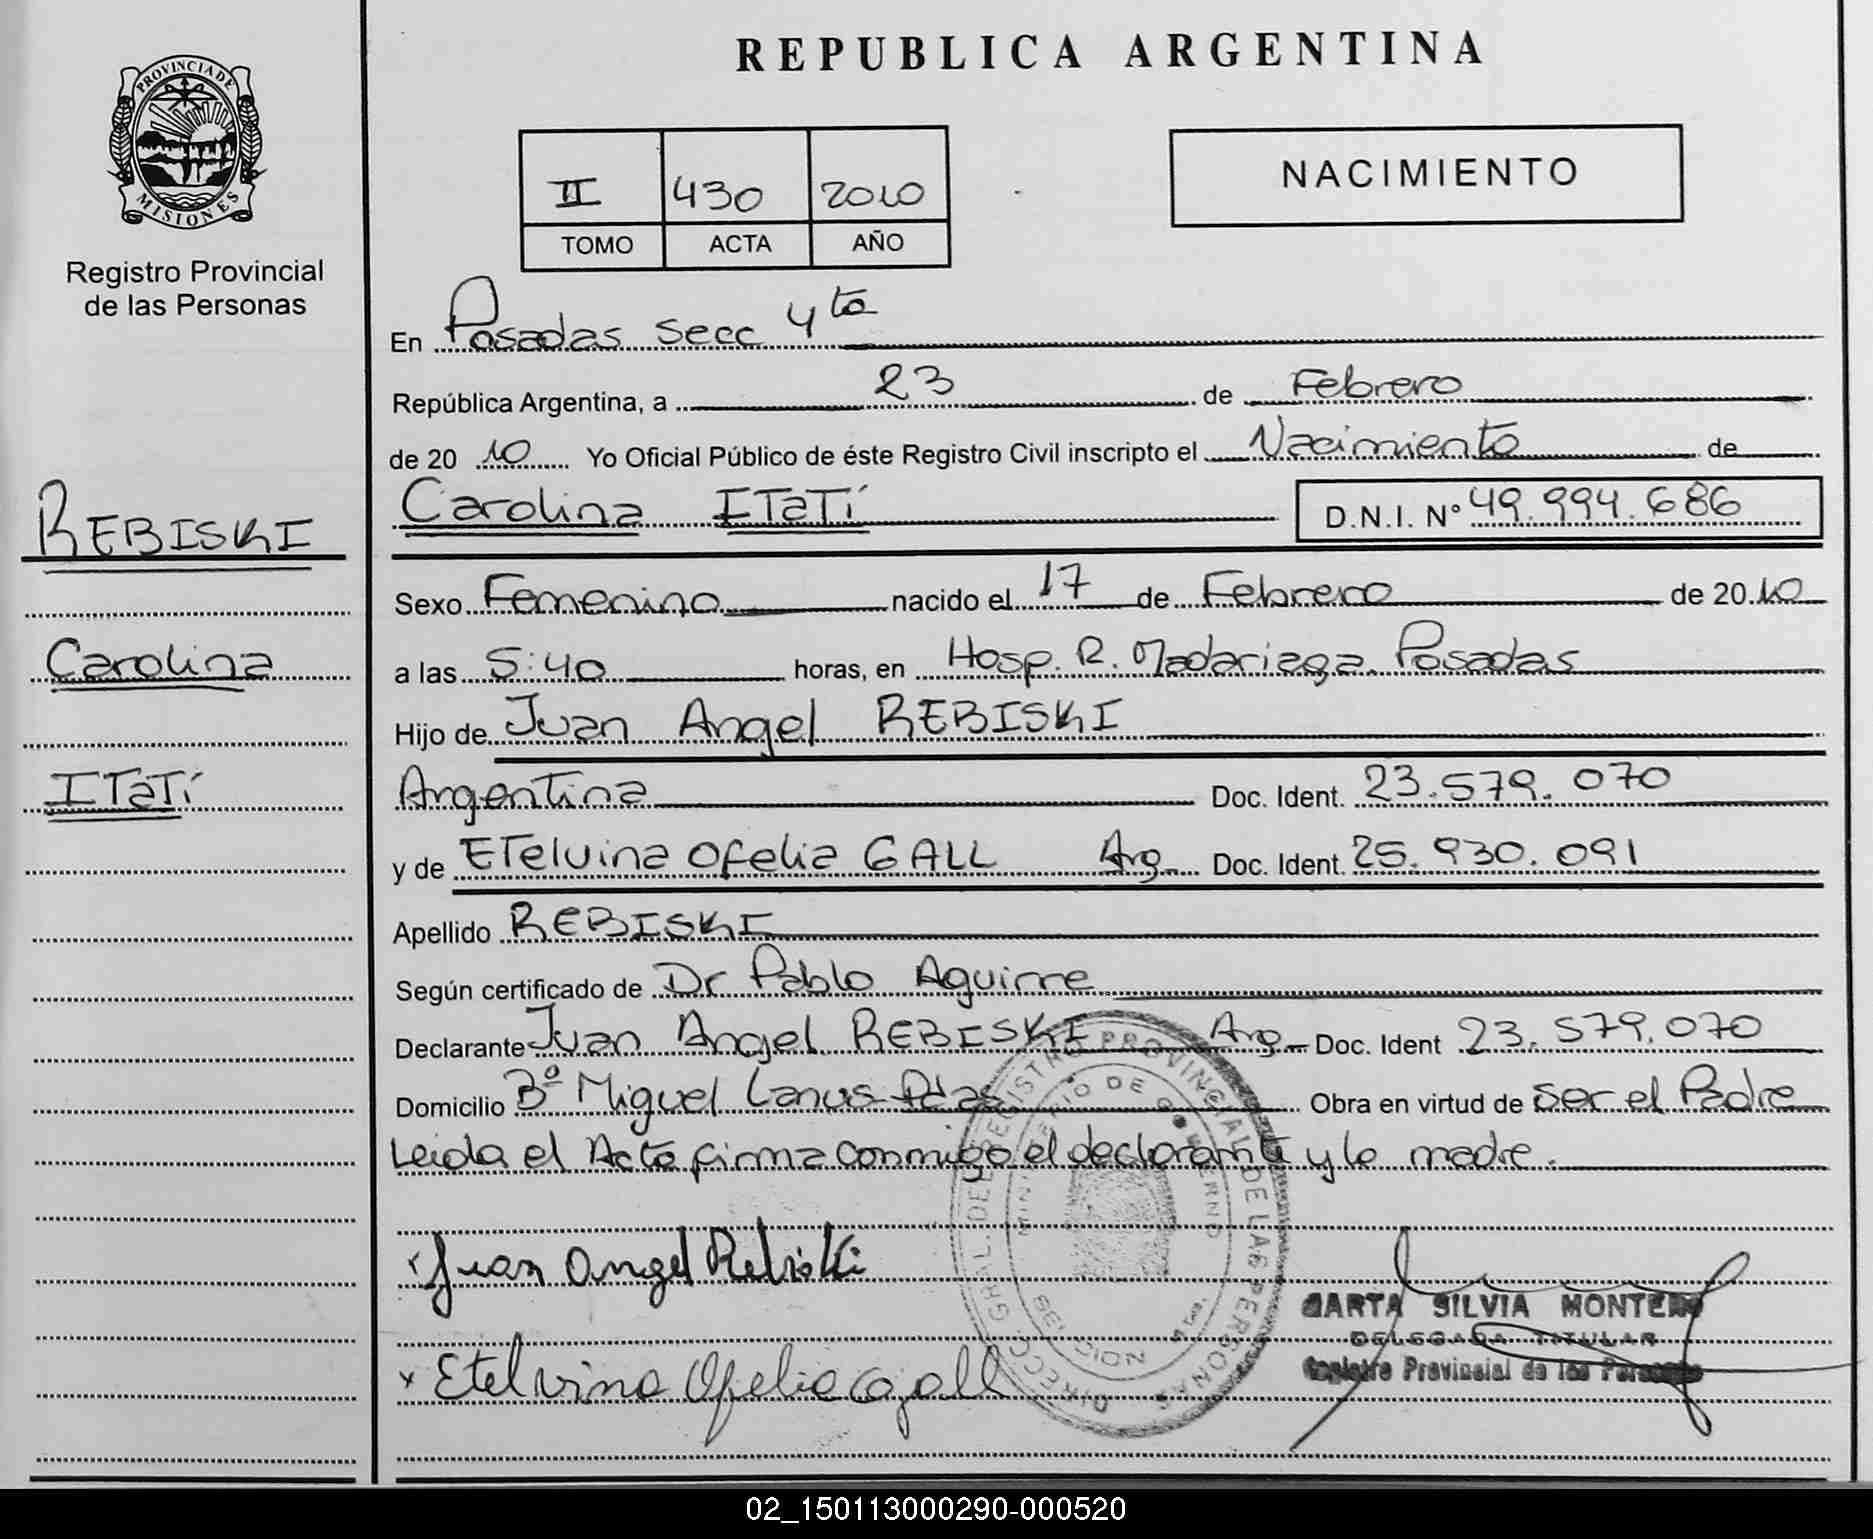 REPUBLICA ARGENTINA
PROVINCIA DE
MISIONES
Registro Provincial
de las Personas
II 430 2010
TOMO ACTA AÑO
NACIMIENTO
En Posadas Secc 4ta
República Argentina, a 23 de Febrero
de 20 10 Yo Oficial Público de éste Registro Civil inscripto el Nacimiento de
Carolina ITaTí D.N.I. Nº 49.994.686
REBISKI
Carolina
ITaTí
Sexo Femenino nacido el 17 de Febrero de 20 10
a las 5:40 horas, en Hosp. R. Madariaga. Posadas
Hijo de Juan Angel REBISKI
Argentina Doc. Ident. 23.579.070
y de ETelvina Ofelia GALL Arg Doc. Ident. 25.930.091
Apellido REBISKI
Según certificado de Dr Pablo Aguirre
Declarante Juan Angel REBISKI Arg Doc. Ident 23.579.070
Domicilio Bº Miguel Lanus Pdas Obra en virtud de ser el Padre
Leida el Acta firma conmigo el declarante y la madre.
Juan Angel Rebiski
Etelvina Ofelia Gall
DIRECC. GRAL. DEL REGISTRO PROVINCIAL DE LAS PERSONAS
MINISTERIO DE GOBIERNO
SILVIA MONTERO
DELEGADA TITULAR
Registro Provincial de las Personas
02_150113000290-000520